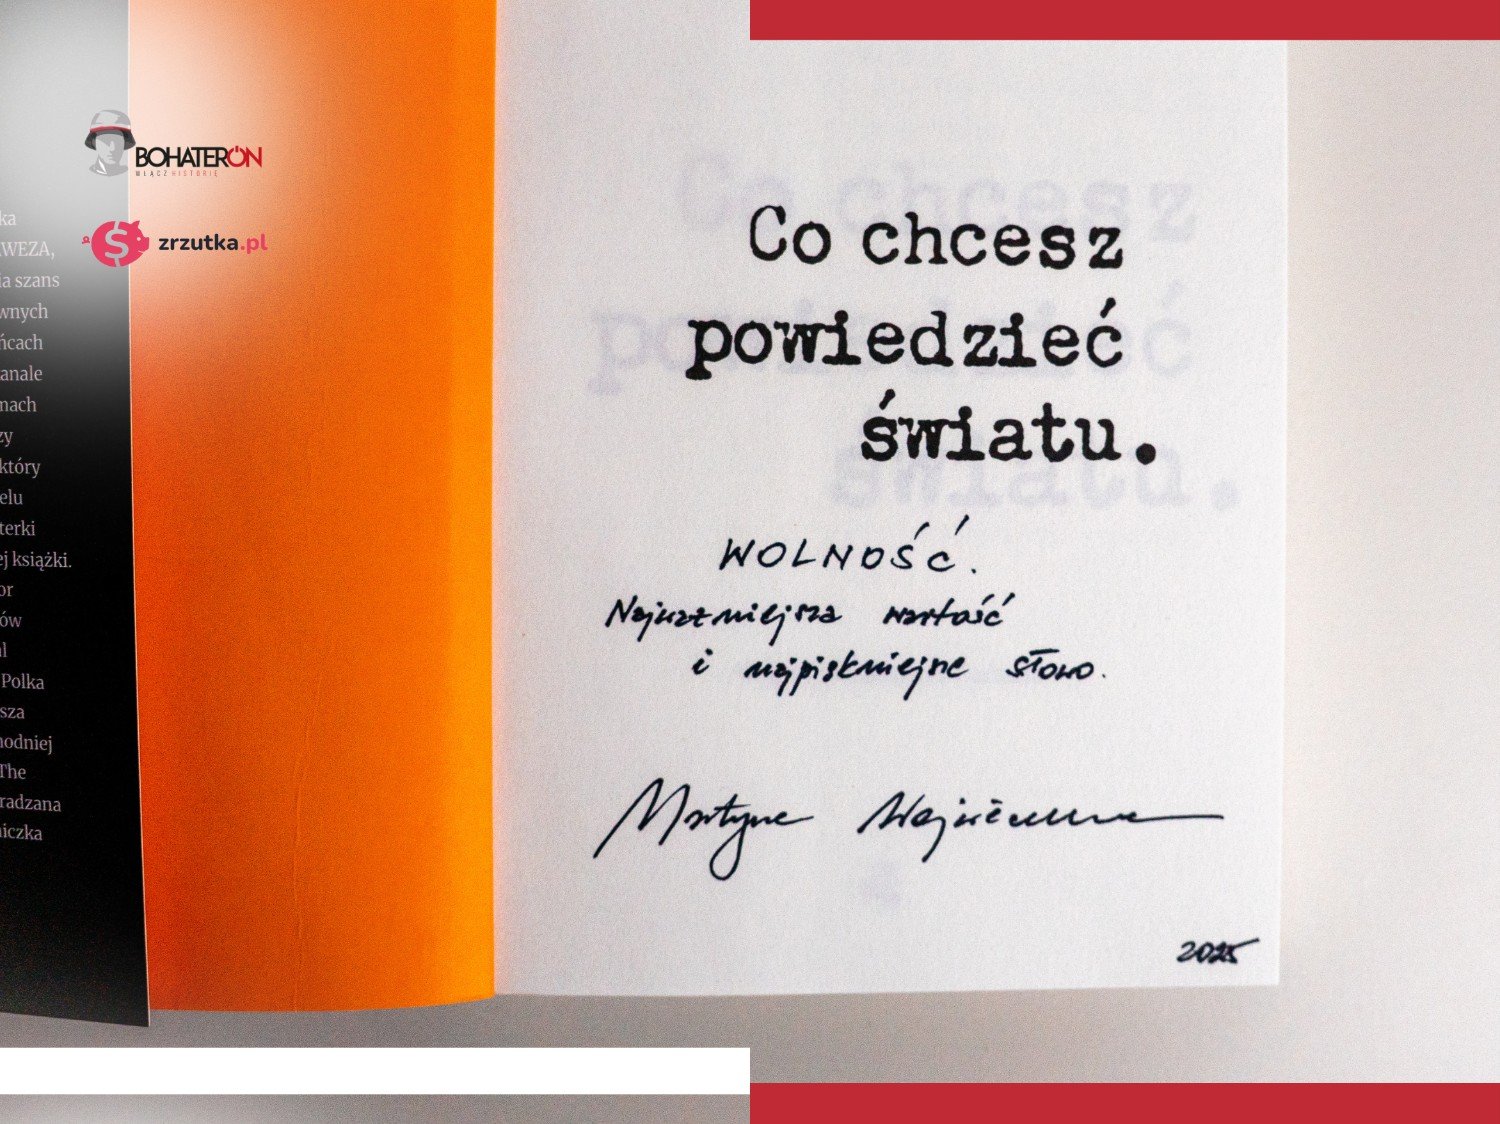 BOHATERON
WŁĄCZ HISTORIĘ
zrzutka.pl
ka
WEZA,
ia szans
wnych
ńcach
kanale
mach
zy
który
elu
terki
ej książki.
or
ów
al
Polka
sza
hodniej
The
radzana
niczka
Co chcesz
powiedzieć
światu.
WOLNOŚĆ.
Najważniejsza wartość
i najpiękniejsze słowo.
Martyna Wojciechowska
2025